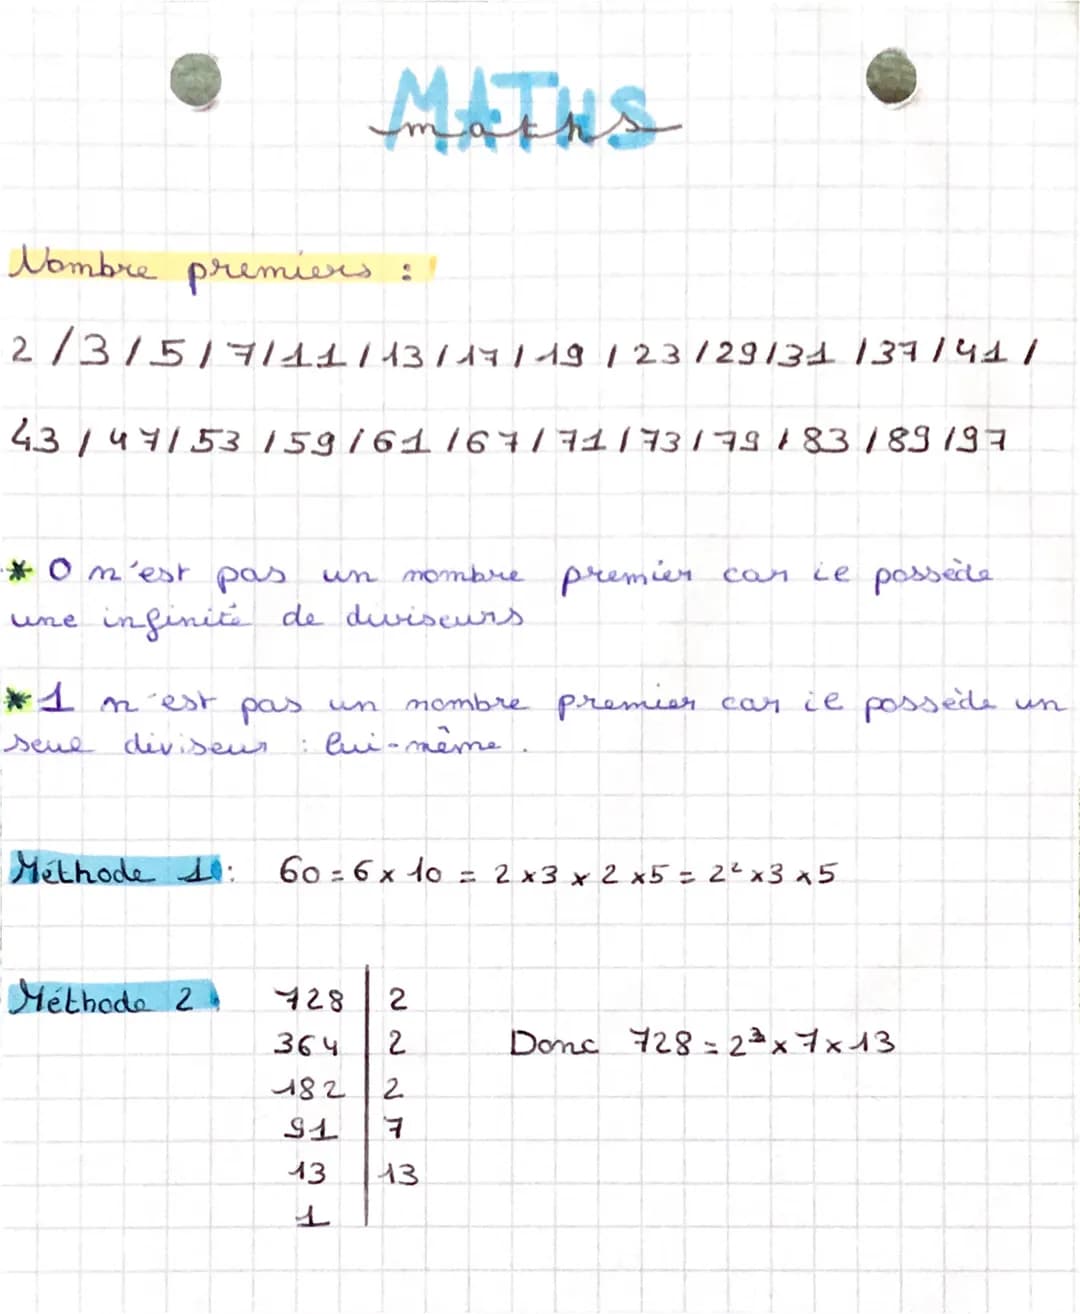 MATHS
maths
Nombre premiers :
2 / 3 / 5 / 7 / 11 / 13 / 17 / 19 / 23 / 29 / 31 / 37 / 41 /
43 / 47 / 53 / 59 / 61 / 67 / 71 / 73 / 79 / 83 / 89 / 97
* 0 n'est pas un nombre premier car il possède
une infinité de diviseurs
* 1 n'est pas un nombre premier car il possède un
seul diviseur : lui-même.
Méthode 1 : 60 = 6 x 10 = 2 x 3 x 2 x 5 = 2² x 3 x 5
Méthode 2 728 | 2
364 | 2 Donc 728 = 2³ x 7 x 13
182 | 2
91 | 7
13 | 13
1